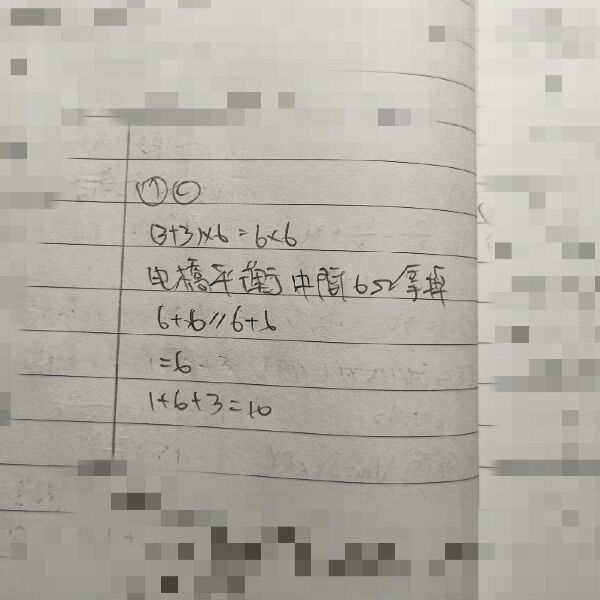 (3+3)×6=6×6
电橋平衡 中間6Ω省掉
6+6//6+6
=6
1+6+3=10